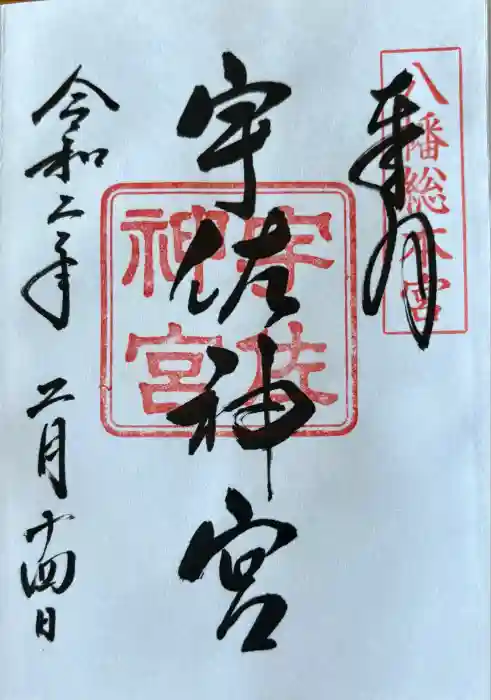 八幡総本宮
奉拝
宇佐神宮
宇佐神宮
令和二年 二月十四日